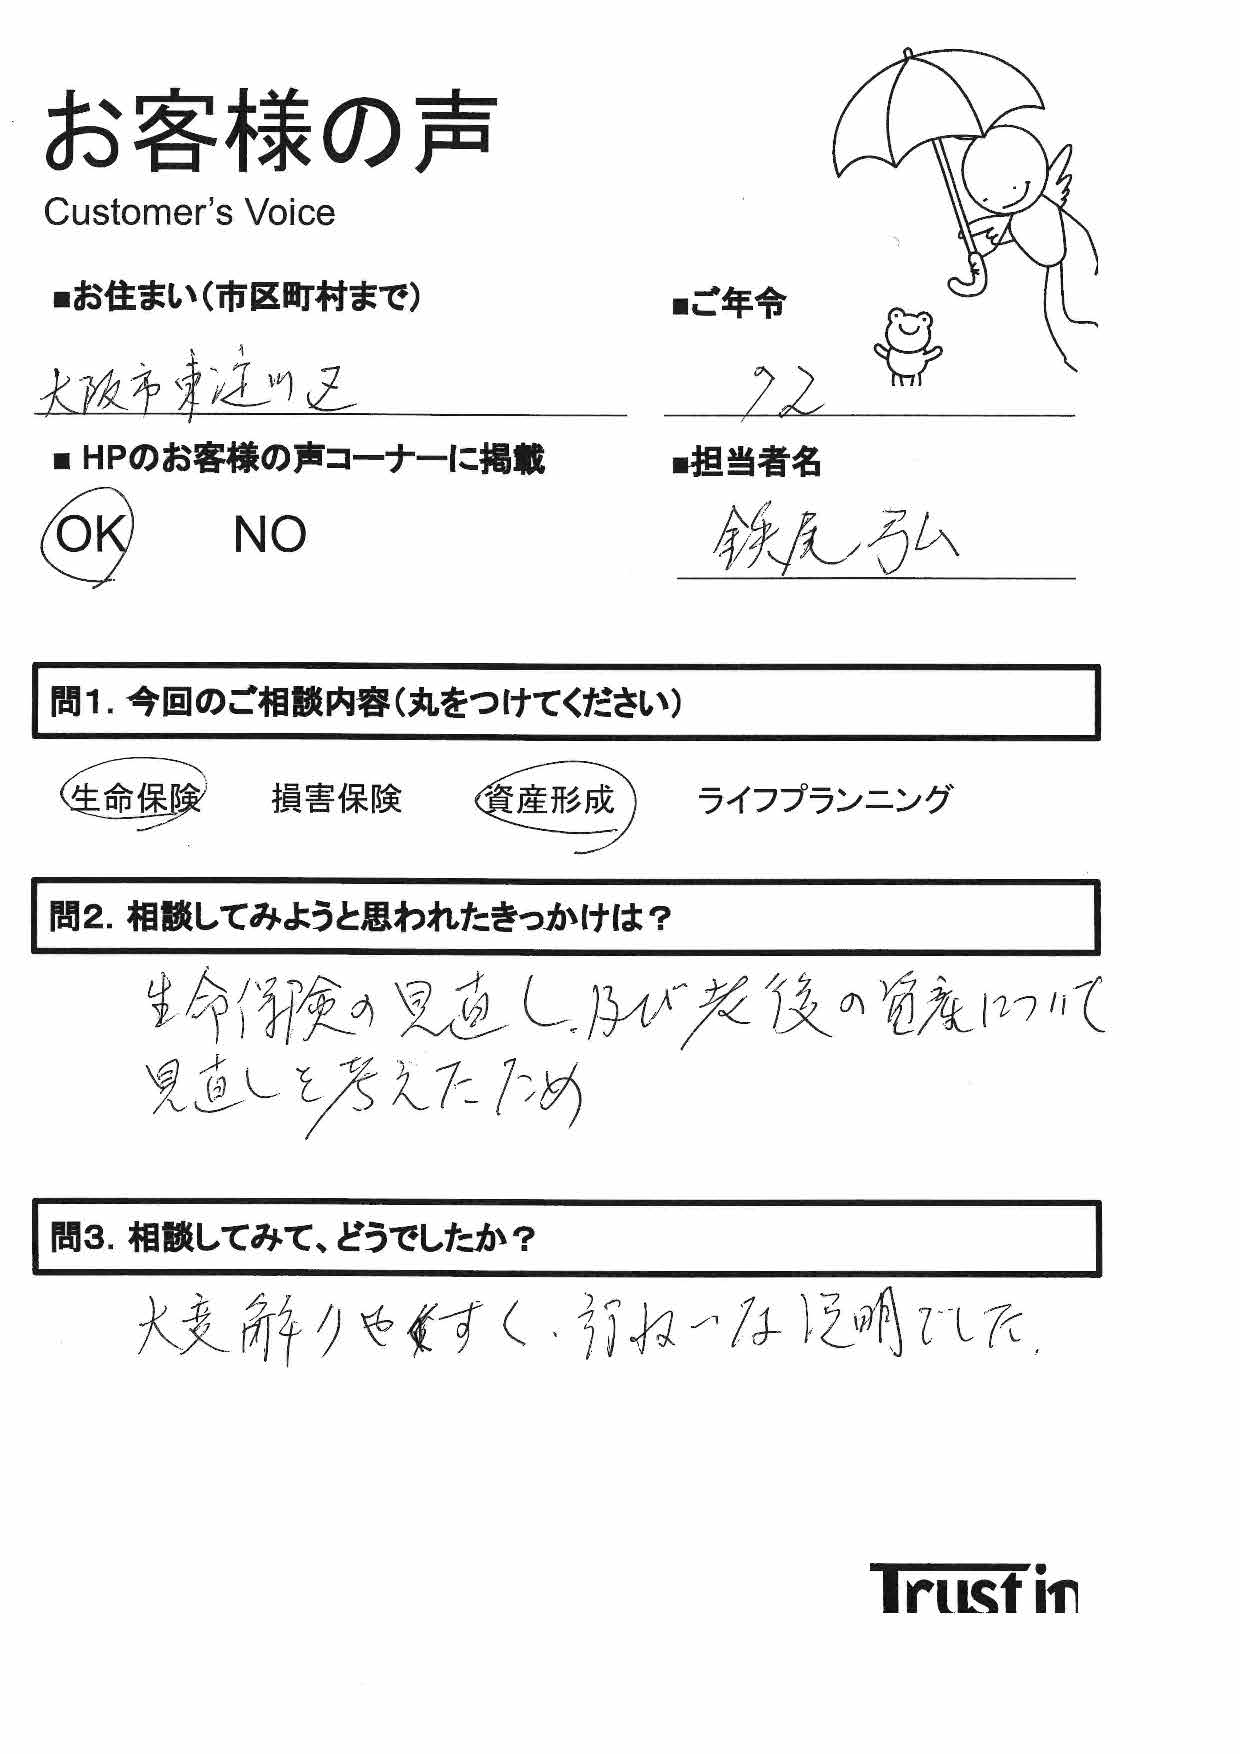 お客様の声
Customer's Voice
■お住まい(市区町村まで)
■ご年令
大阪市東淀川区
72
■ HPのお客様の声コーナーに掲載
■担当者名
OK NO
鉄尾 弘
問1. 今回のご相談内容(丸をつけてください)
生命保険 損害保険 資産形成 ライフプランニング
問2. 相談してみようと思われたきっかけは?
生命保険の見直し、及び老後の資産について
見直しを考えたため
問3. 相談してみて、どうでしたか?
大変解りやすく、丁ねいな説明でした。
Trust in